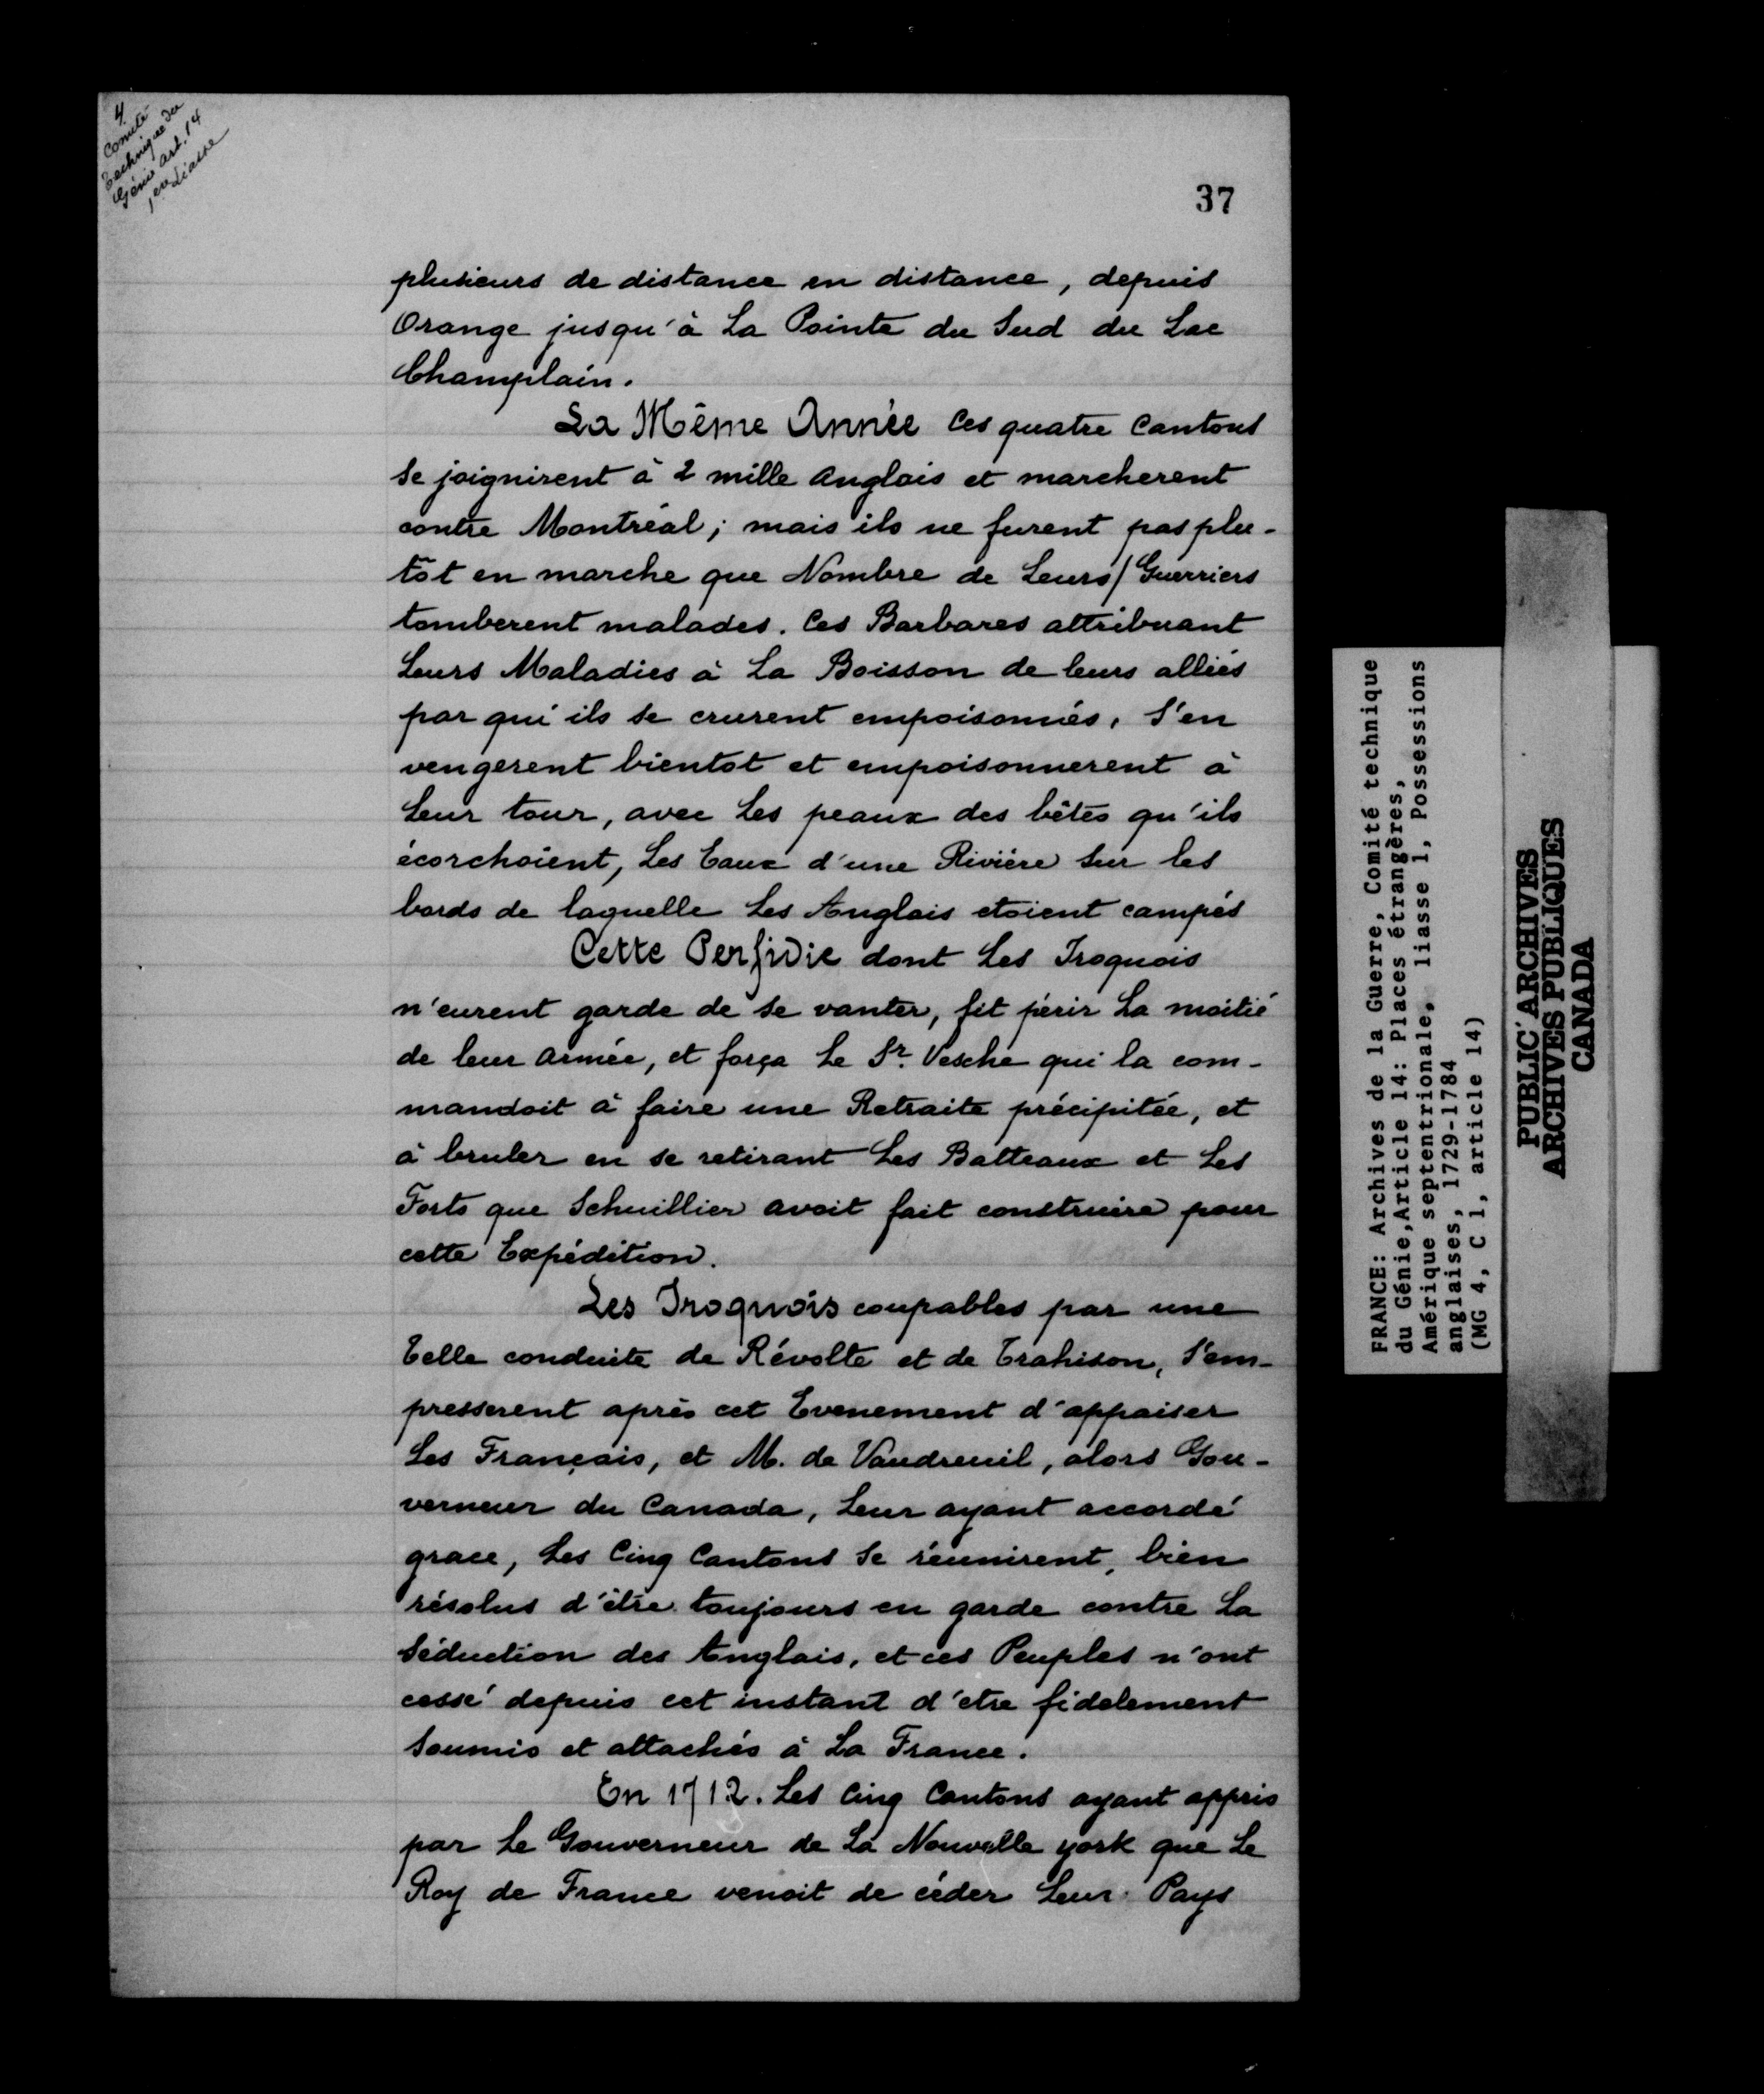 4.
Comité
Technique du
Génie art. 14
1ère Liasse
37
plusieurs de distance en distance, depuis
Orange jusqu'à La Pointe du Sud du Lac
Champlain.
La Même Année Ces quatre Cantons
Se joignirent à 2 mille Anglais et marcherent
contre Montréal; mais ils ne furent pas plu-
tôt en marche que Nombre de Leurs/ Guerriers
tomberent malades. Ces Barbares attribuant
Leurs Maladies à La Boisson de leurs alliés
par qui ils se crurent empoisonnés, S'en
vengerent bientot et empoisonnerent à
Leur tour, avec Les peaux des bêtes qu'ils
écorchoient, Les Eaux d'une Rivière Sur les
bords de laquelle Les Anglais etoient campés
Cette Perfidie dont Les Iroquois
n'eurent garde de Se vanter, fit périr La moitié
de leur armée, et força Le Sr. Vesche qui la com-
mandoit à faire une Retraite précipitée, et
à bruler en se retirant Les Batteaux et Les
Forts que Schuillier avoit fait construire pour
cette Expédition.
Les Iroquois coupables par une
Telle conduite de Révolte et de Trahison, S'em-
presserent après cet Evenement d'appaiser
Les Français, et M. de Vaudreuil, alors Gou-
verneur du Canada, Leur ayant accordé
grace, Les Cinq Cantons Se réunirent, bien
résolus d'être toujours en garde contre La
Séduction des Anglais, et ces Peuples n'ont
cessé depuis cet instant d'etre fidelement
Soumis et attachés à La France.
En 1712. Les Cinq Cantons ayant appris
par Le Gouverneur de La Nouvelle york que Le
Roy de France venoit de céder Leur Pays
FRANCE: Archives de la Guerre, Comité technique
du Génie,Article 14: Places étrangères,
Amérique septentrionale, liasse 1, Possessions
anglaises, 1729-1784
(MG 4, C 1, article 14)
PUBLIC ARCHIVES
ARCHIVES PUBLIQUES
CANADA